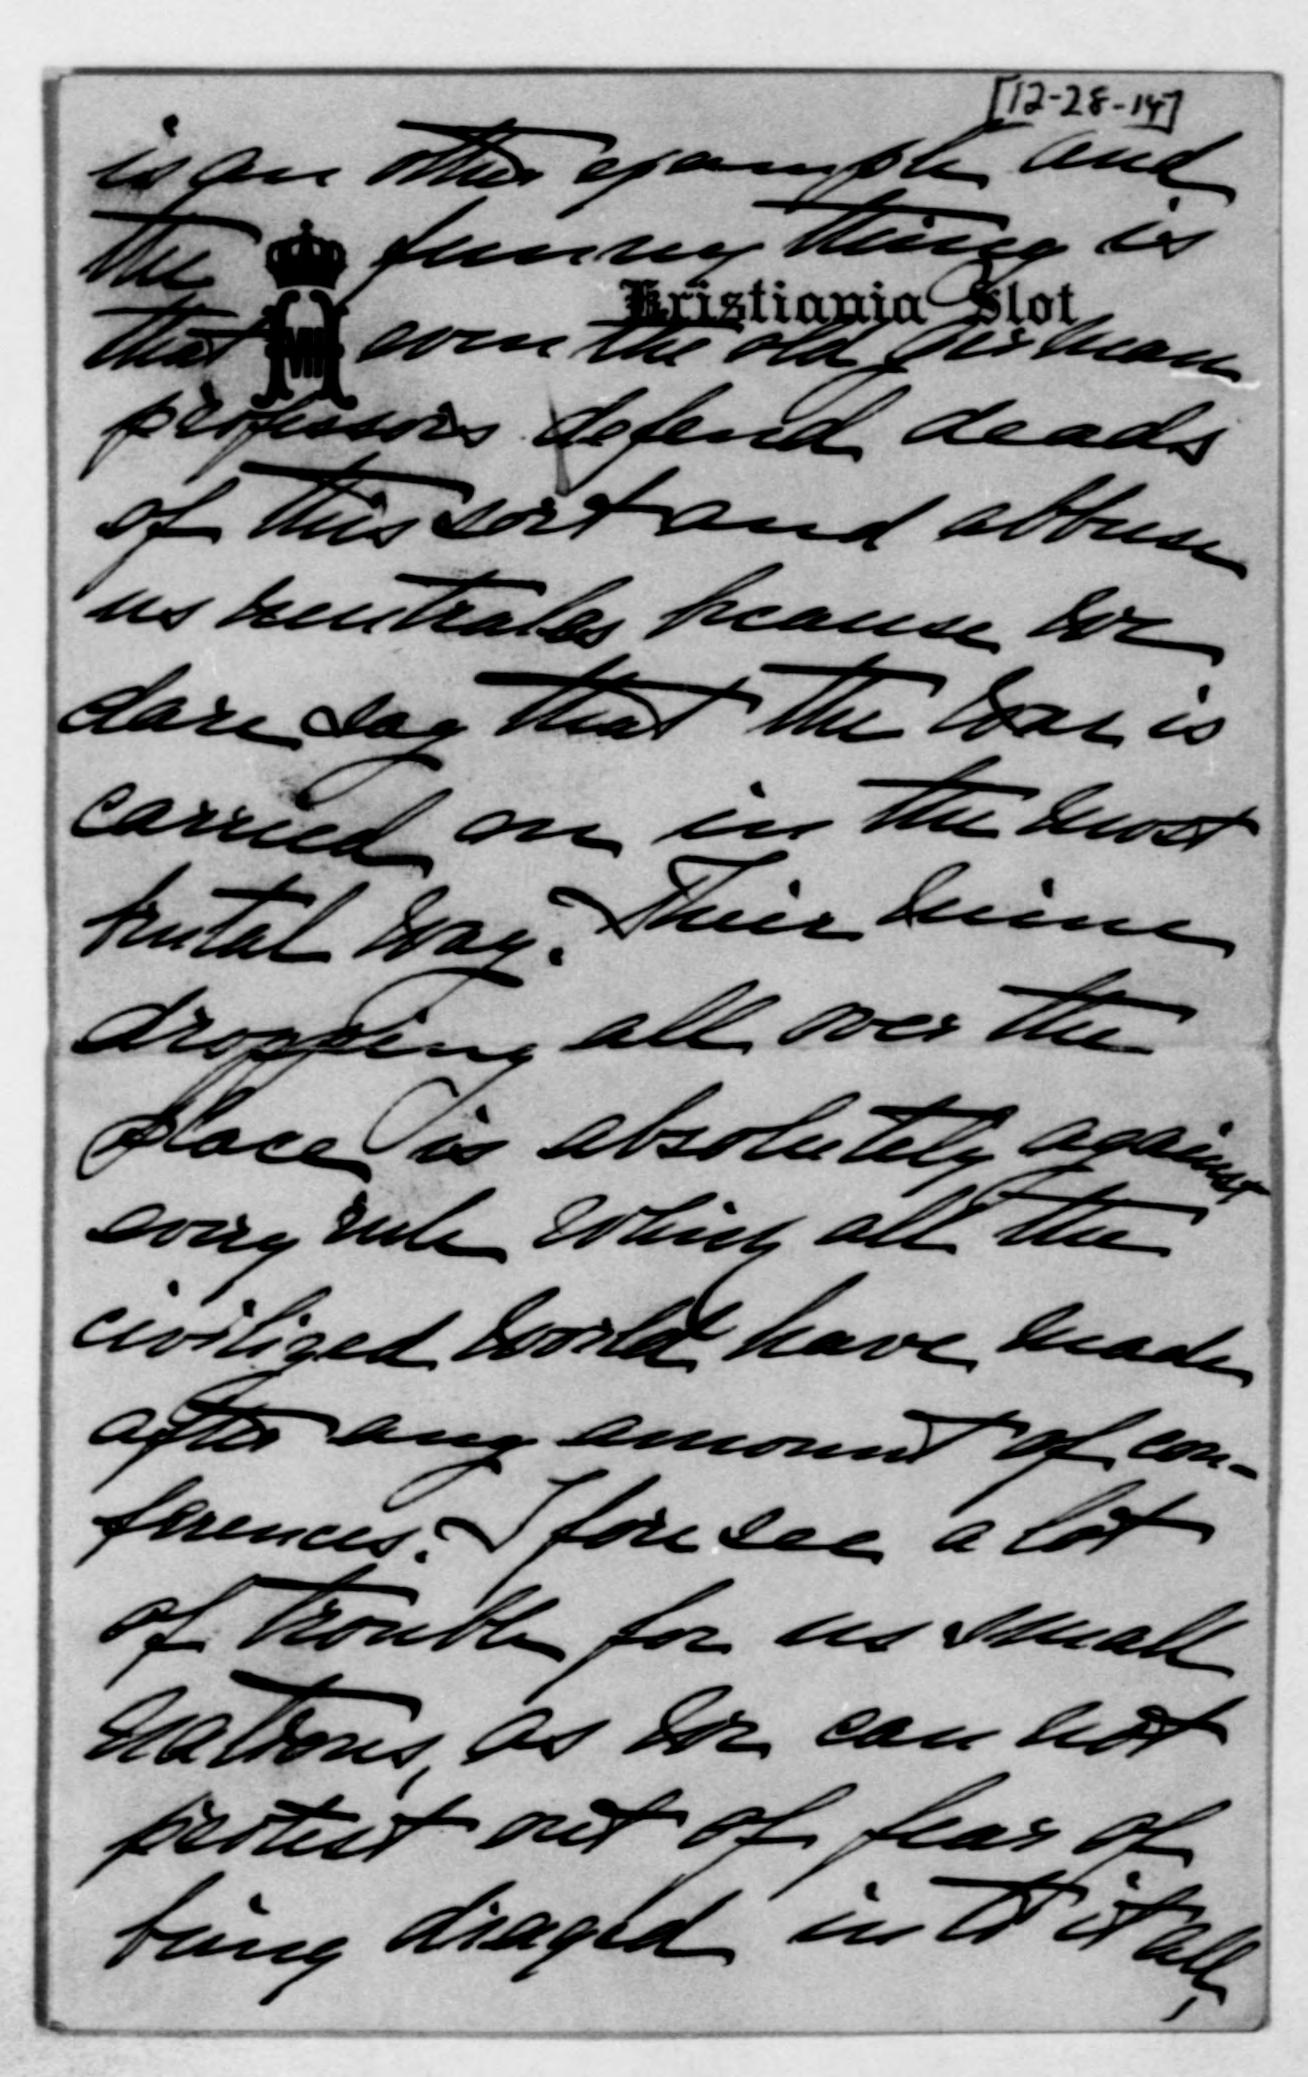 [12-28-14]
is an other example and
the funny thing is
Kristiania Slot
that even the old German
professors defend deads
of this sort and abbuse
us neutrales because we
dare say that the war is
carried on in the most
brutal way. Their mine
dropping all over the
place is absolutely against
every rule which all the
civilized world have made
after any amount of con-
ferences. I foresee a lot
of trouble for us small
nations, as we can not
protest out of fear of
being draged into it all,